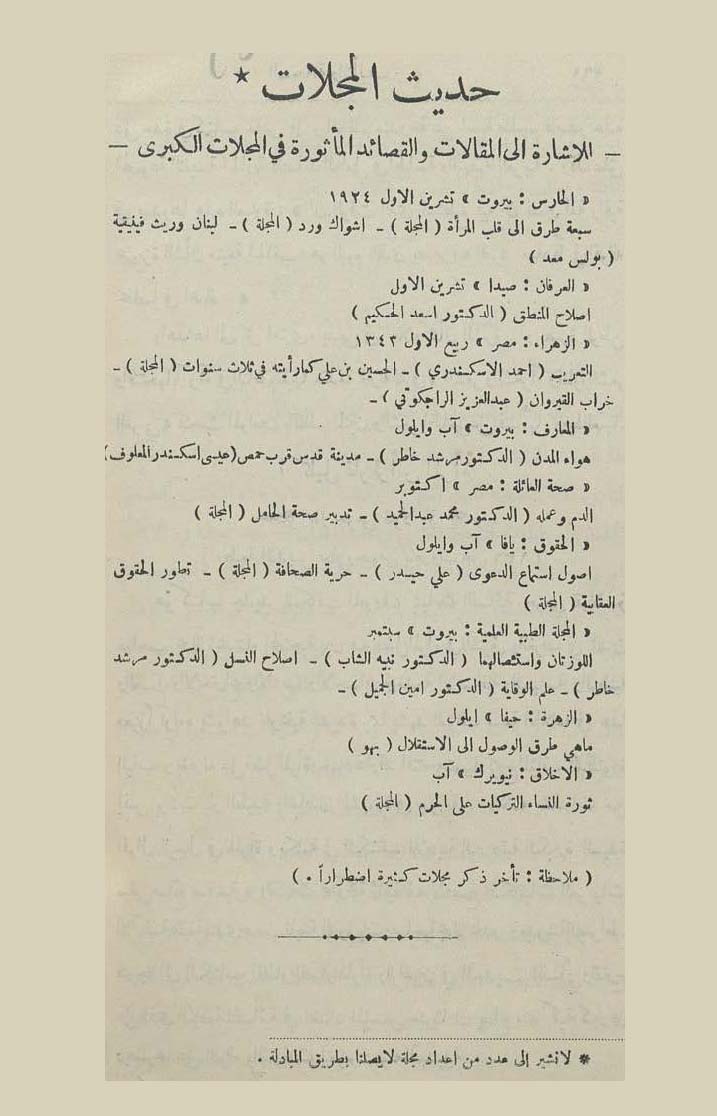 حديث المجلات *
— للاشارة الى المقالات والقصائد المأثورة في المجلات الكبرى —
« الحارس : بيروت » تشرين الاول ١٩٢٤
سبعة طرق الى قلب المرأة ( المجلة ) – اشواك ورد ( المجلة ) – لبنان وريث فينيقية
( بولس معد )
« العرفان : صيدا » تشرين الاول
اصلاح المنطق ( الدكتور اسعد الحكيم )
« الزهراء : مصر » ربيع الاول ١٣٤٣
التعريب ( احمد الاسكندري ) – الحسين بن علي كما رأيته في ثلاث سنوات ( المجلة ) –
خراب القيروان ( عبدالعزيز الراجكوتي ) –
« المعارف : بيروت » آب وايلول
هواء المدن ( الدكتور مرشد خاطر ) – مدينة قدس قرب حمص (عيسى اسكندر المعلوف)
« صحة العائلة : مصر » اكتوبر
الدم وعمله ( الدكتور محمد عبدالحميد ) – تدبير صحة الحامل ( المجلة )
« الحقوق : يافا » آب وايلول
اصول استماع الدعوى ( علي حيدر ) – حرية الصحافة ( المجلة ) – تطور الحقوق
العقابية ( المجلة )
« المجلة الطبية العلمية : بيروت » سبتمبر
اللوزتان واستئصالهما ( الدكتور نبيه الشاب ) – اصلاح النسل ( الدكتور مرشد
خاطر ) – علم الوقاية ( الدكتور امين الجميل ) –
« الزهرة : حيفا » ايلول
ماهي طرق الوصول الى الاستقلال ( بهو )
« الاخلاق : نيويرك » آب
ثورة النساء التركيات على الحرم ( المجلة )
( ملاحظة : تأخر ذكر مجلات كثيرة اضطراراً . )
* لانشير إلى عدد من اعداد مجلة لايصلنا بطريق المبادلة .